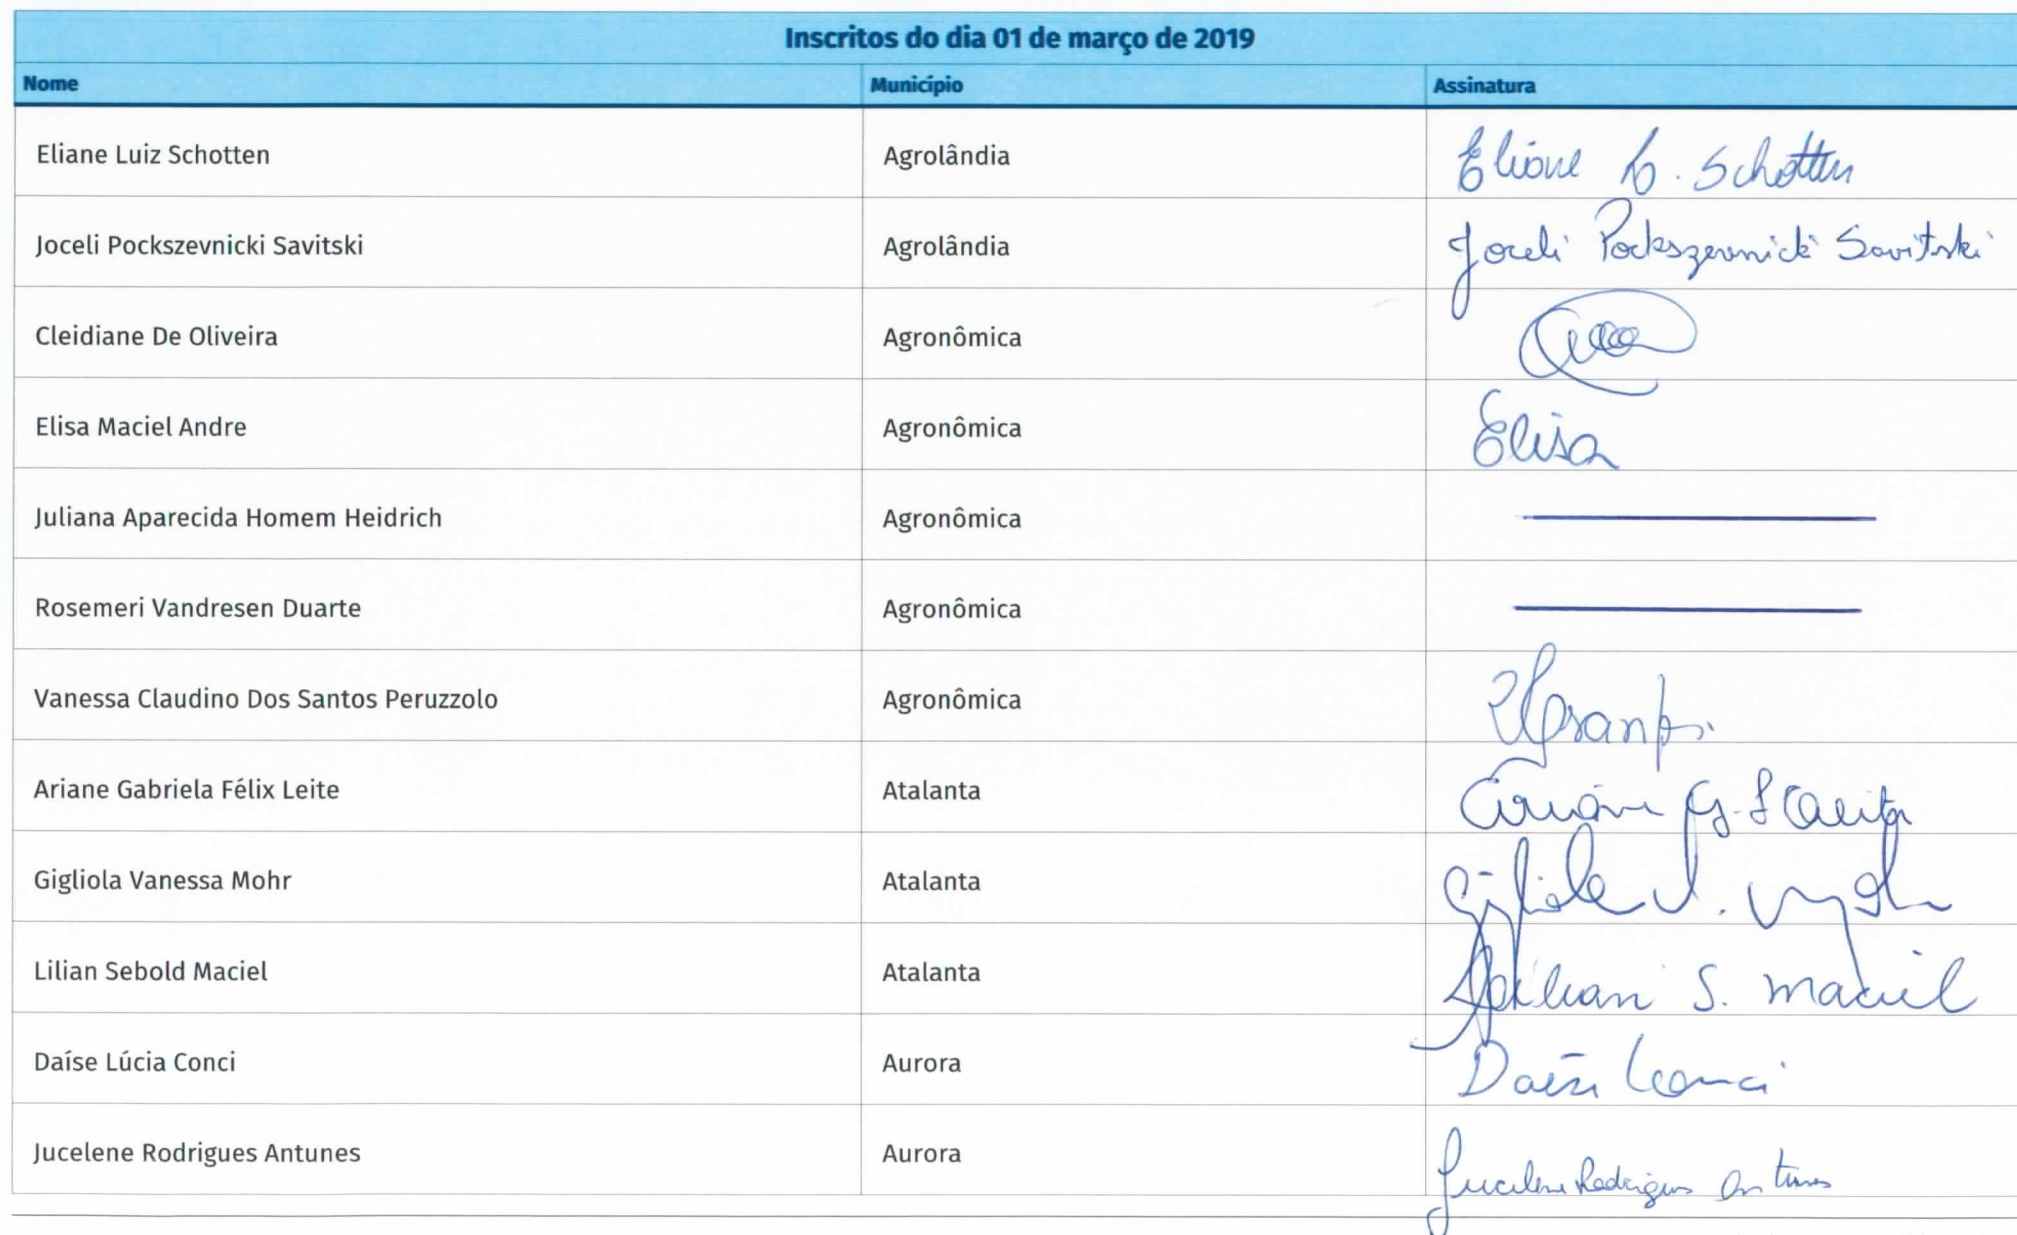 Inscritos do dia 01 de março de 2019
Nome Município Assinatura
Eliane Luiz Schotten Agrolândia Eliane L. Schotten
Joceli Pockszevnicki Savitski Agrolândia Joceli Pockszevnicki Savitski
Cleidiane De Oliveira Agronômica
Elisa Maciel Andre Agronômica Elisa
Juliana Aparecida Homem Heidrich Agronômica
Rosemeri Vandresen Duarte Agronômica
Vanessa Claudino Dos Santos Peruzzolo Agronômica
Ariane Gabriela Félix Leite Atalanta Ariane G. F. Leite
Gigliola Vanessa Mohr Atalanta Gigliola V. Mohr
Lilian Sebold Maciel Atalanta Lilian S. Maciel
Daíse Lúcia Conci Aurora Daíse Conci
Jucelene Rodrigues Antunes Aurora Jucelene Rodrigues Antunes